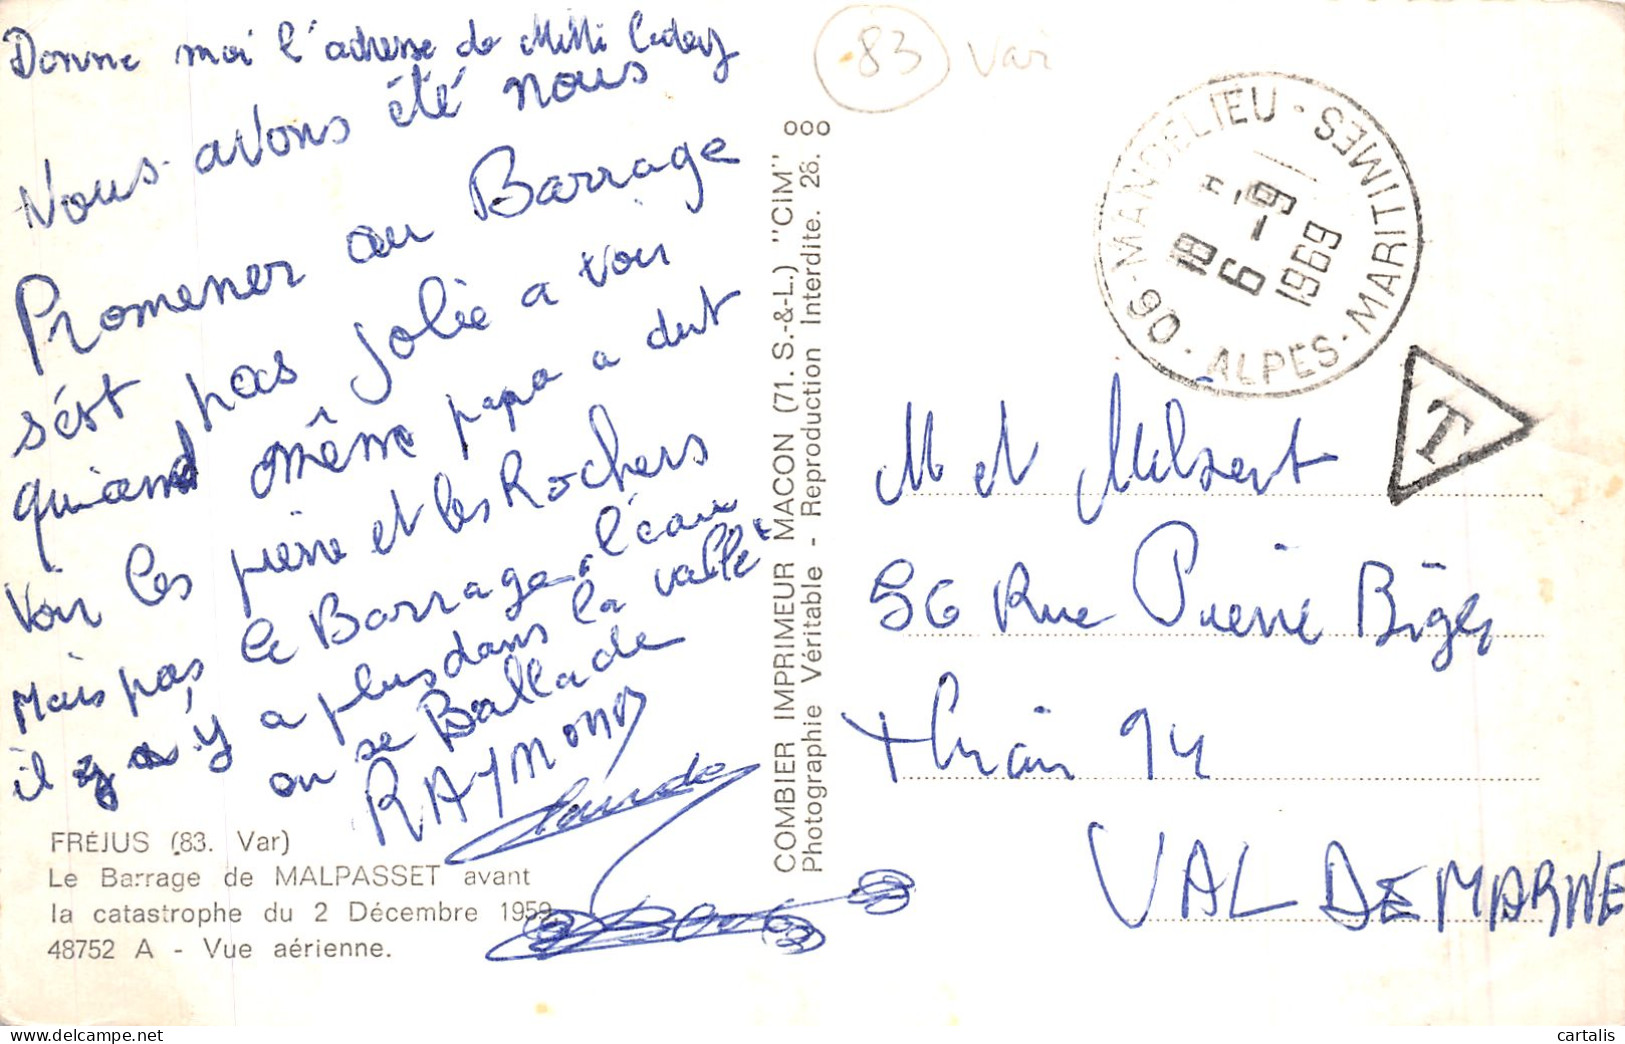 Donne moi l'adresse de Milli
Nous avons été nous
Promener au Barrage
sést pas jolie a voir
quand même papa a dut
voir les pierre et les Rochers
Mais pas le Barrage, l'eau
il y a plus dans la vallé
on se Ballade
RAYMOND
Claude
FRÉJUS (83. Var)
Le Barrage de MALPASSET avant
la catastrophe du 2 Décembre 1959.
48752 A - Vue aérienne.
COMBIER IMPRIMEUR MACON (71. S.-&-L.) "CIM"
Photographie Véritable - Reproduction Interdite. 26.
000
83 Var
90 - MANDELIEU - ALPES-MARITIMES
18 H
6 - 9
1969
T
M et
Rue Pierre
94
VAL DE MARNE
cartalis